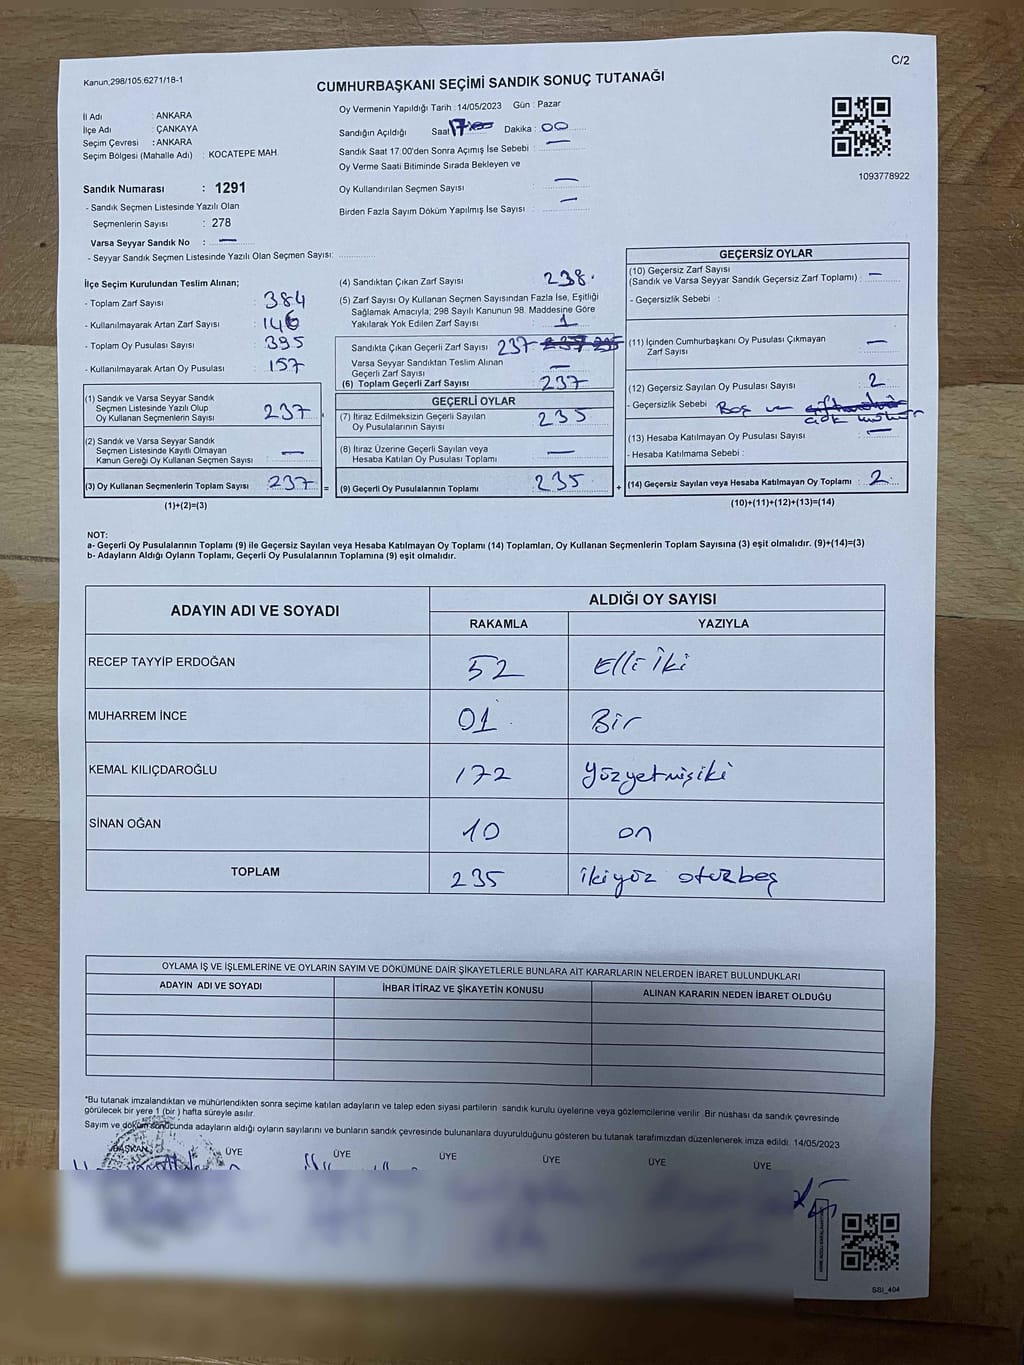 Kanun,298/105,6271/18-1
C/2
CUMHURBAŞKANI SEÇİMİ SANDIK SONUÇ TUTANAĞI
İl Adı : ANKARA
İlçe Adı : ÇANKAYA
Seçim Çevresi : ANKARA
Seçim Bölgesi (Mahalle Adı) : KOCATEPE MAH
Sandık Numarası : 1291
- Sandık Seçmen Listesinde Yazılı Olan
Seçmenlerin Sayısı : 278
Varsa Seyyar Sandık No : —
- Seyyar Sandık Seçmen Listesinde Yazılı Olan Seçmen Sayısı:
Oy Vermenin Yapıldığı Tarih :14/05/2023 Gün : Pazar
Sandığın Açıldığı Saat 17 Dakika : 00
Sandık Saat 17.00'den Sonra Açımış İse Sebebi : —
Oy Verme Saati Bitiminde Sırada Bekleyen ve
Oy Kullandırılan Seçmen Sayısı : —
Birden Fazla Sayım Döküm Yapılmış İse Sayısı : —
1093778922
İlçe Seçim Kurulundan Teslim Alınan;
- Toplam Zarf Sayısı : 384
- Kullanılmayarak Artan Zarf Sayısı : 146
- Toplam Oy Pusulası Sayısı : 395
- Kullanılmayarak Artan Oy Pusulası : 157
(1) Sandık ve Varsa Seyyar Sandık
Seçmen Listesinde Yazılı Olup
Oy Kullanan Seçmenlerin Sayısı : 237
(2) Sandık ve Varsa Seyyar Sandık
Seçmen Listesinde Kayıtlı Olmayan
Kanun Gereği Oy Kullanan Seçmen Sayısı : —
(3) Oy Kullanan Seçmenlerin Toplam Sayısı : 237 =
(1)+(2)=(3)
(4) Sandıktan Çıkan Zarf Sayısı : 238.
(5) Zarf Sayısı Oy Kullanan Seçmen Sayısından Fazla İse, Eşitliği
Sağlamak Amacıyla; 298 Sayılı Kanunun 98. Maddesine Göre
Yakılarak Yok Edilen Zarf Sayısı : 1
Sandıkta Çıkan Geçerli Zarf Sayısı : 237
Varsa Seyyar Sandıktan Teslim Alınan
Geçerli Zarf Sayısı : —
(6) Toplam Geçerli Zarf Sayısı : 237
GEÇERLİ OYLAR
(7) İtiraz Edilmeksizin Geçerli Sayılan
Oy Pusulalarının Sayısı : 235
(8) İtiraz Üzerine Geçerli Sayılan veya
Hesaba Katılan Oy Pusulası Toplamı : —
(9) Geçerli Oy Pusulalarının Toplamı : 235 +
GEÇERSİZ OYLAR
(10) Geçersiz Zarf Sayısı
(Sandık ve Varsa Seyyar Sandık Geçersiz Zarf Toplamı) : —
- Geçersizlik Sebebi :
(11) İçinden Cumhurbaşkanı Oy Pusulası Çıkmayan
Zarf Sayısı : —
(12) Geçersiz Sayılan Oy Pusulası Sayısı : 2
- Geçersizlik Sebebi : Boş ve
çok mühür
(13) Hesaba Katılmayan Oy Pusulası Sayısı : —
- Hesaba Katılmama Sebebi :
(14) Geçersiz Sayılan veya Hesaba Katılmayan Oy Toplamı : 2
(10)+(11)+(12)+(13)=(14)
NOT:
a- Geçerli Oy Pusulalarının Toplamı (9) ile Geçersiz Sayılan veya Hesaba Katılmayan Oy Toplamı (14) Toplamları, Oy Kullanan Seçmenlerin Toplam Sayısına (3) eşit olmalıdır. (9)+(14)=(3)
b- Adayların Aldığı Oyların Toplamı, Geçerli Oy Pusulalarının Toplamına (9) eşit olmalıdır.
ADAYIN ADI VE SOYADI
ALDIĞI OY SAYISI
RAKAMLA YAZIYLA
RECEP TAYYİP ERDOĞAN 52 Elli İki
MUHARREM İNCE 01 Bir
KEMAL KILIÇDAROĞLU 172 Yüzyetmişiki
SİNAN OĞAN 10 on
TOPLAM 235 ikiyüz otuzbeş
OYLAMA İŞ VE İŞLEMLERİNE VE OYLARIN SAYIM VE DÖKÜMÜNE DAİR ŞİKAYETLERLE BUNLARA AİT KARARLARIN NELERDEN İBARET BULUNDUKLARI
ADAYIN ADI VE SOYADI İHBAR İTİRAZ VE ŞİKAYETİN KONUSU ALINAN KARARIN NEDEN İBARET OLDUĞU
*Bu tutanak imzalandıktan ve mühürlendikten sonra seçime katılan adayların ve talep eden siyasi partilerin sandık kurulu üyelerine veya gözlemcilerine verilir. Bir nüshası da sandık çevresinde
görülecek bir yere 1 (bir ) hafta süreyle asılır.
Sayım ve döküm sonucunda adayların aldığı oyların sayılarını ve bunların sandık çevresinde bulunanlara duyurulduğunu gösteren bu tutanak tarafımızdan düzenlenerek imza edildi. 14/05/2023
BAŞKAN ÜYE ÜYE ÜYE ÜYE ÜYE ÜYE
SSI_404